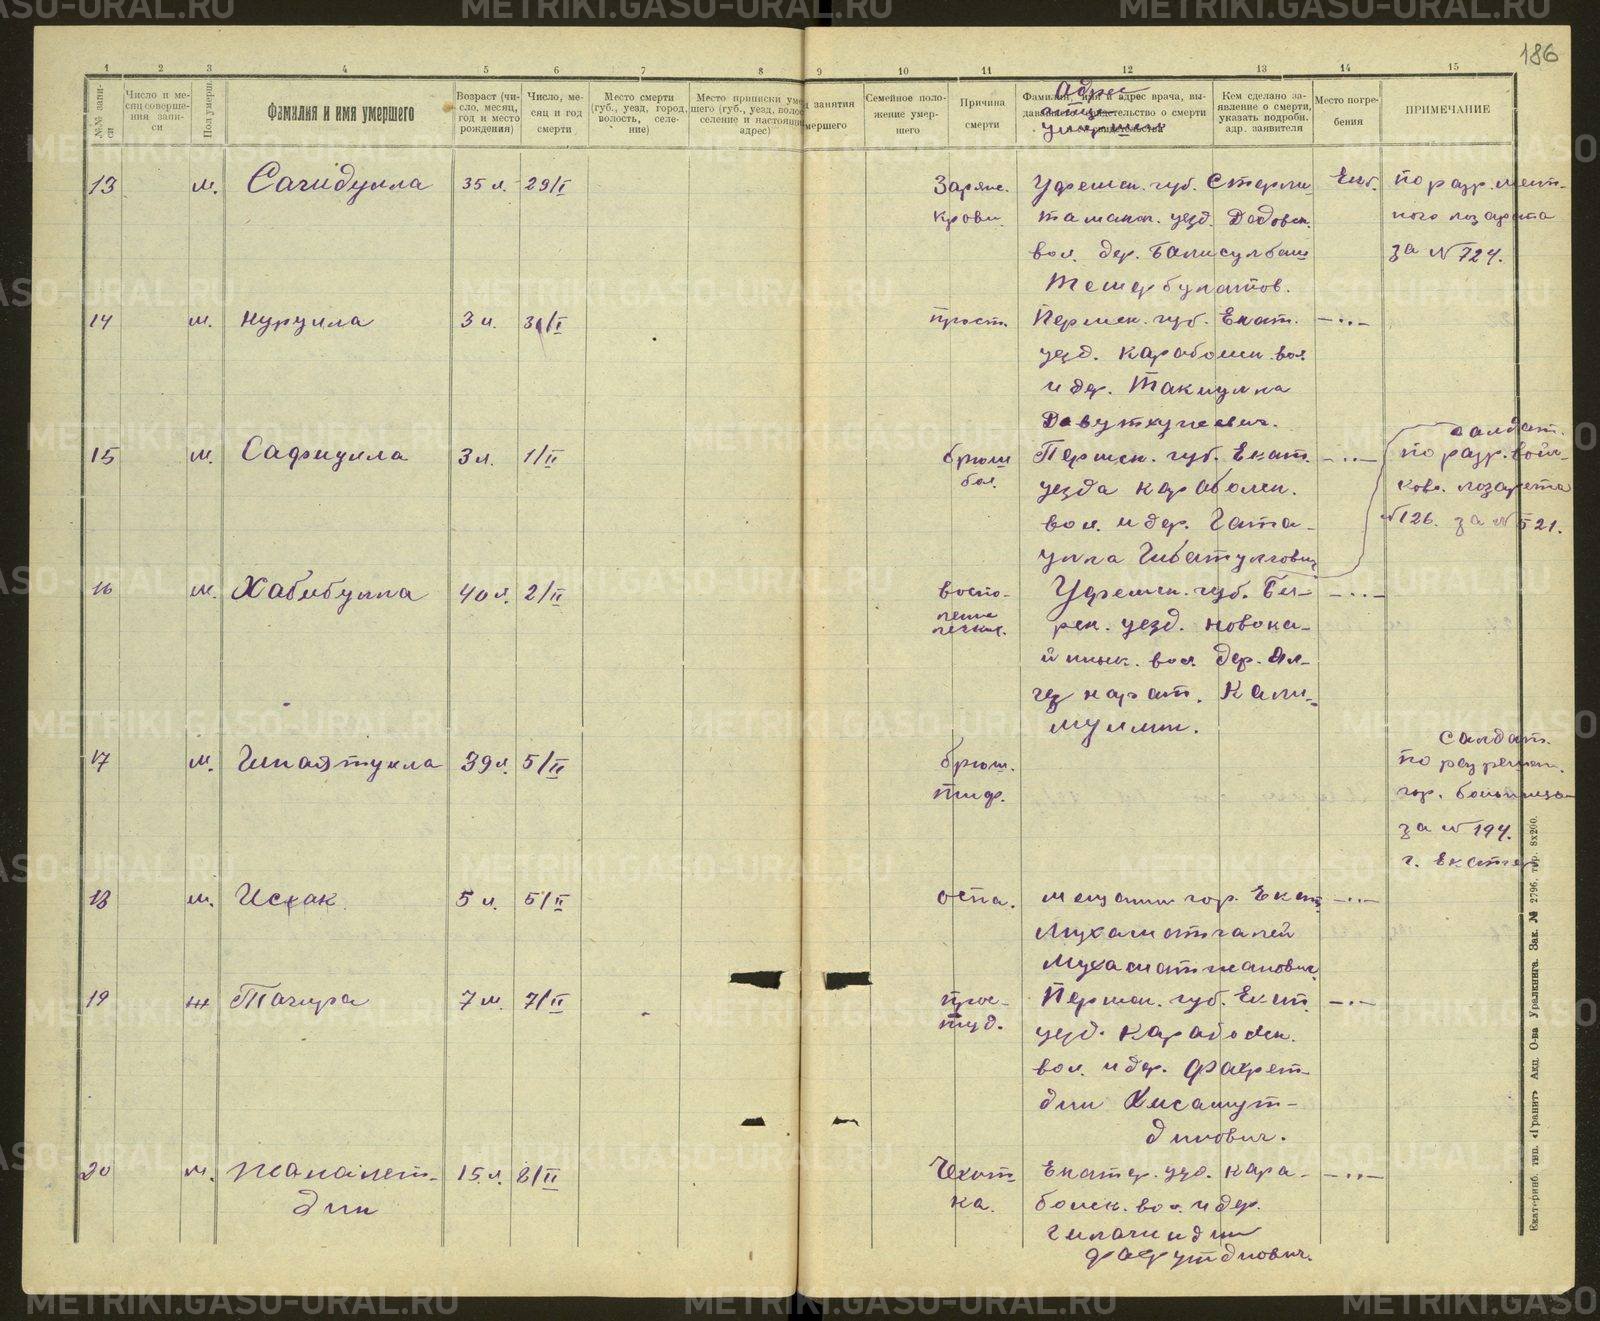 186
1 2 3 4 5 6 7 8 9 10 11 12 13 14 15
№№ записи
Число и месяц совершения записи
Пол умерш.
Фамилия и имя умершего
Возраст (число, месяц, год и место рождения)
Число, месяц и год смерти
Место смерти (губ., уезд, город, волость, селение)
Место приписки умершего (губ., уезд, волос. селение и настоящий адрес)
занятия умершего
Семейное положение умершего
Причина смерти
Фамилия, имя и адрес врача, выдавшего свидетельство о смерти
Адрес
Кем сделано заявление о смерти, указать подробн. адр. заявителя
Место погребения
ПРИМЕЧАНИЕ
13 м. Сагидулла 35 л. 29/I Зараж. Уфимск. губ. Стерли- Екб. по разр. мест-
крови. тамакск. уезд. Дедовск. ного лозарета
вол. дер. за № 724.
Темербулатов.
14 м. Нурулла 3 м. 31/I прост. Пермск. губ. Екат. -..-
уезд. Караболск. вол
и др. Такиулла
15 м. Сафиулла 3 л. 1/II брюш Пермск. губ. Екат. -..- салдат.
бол. уезда Караболск. по разр. войс-
вол. и дер. Гата- ков. лозарета
улла Гибатуллович № 126. за № 521.
16 м. Хабибулла 40 л. 2/II воспо- Уфимск. губ. Би- -..-
ление рск. уезд. Новока-
вол. дер.
Кали-
муллин.
17 м. Гинаятулла 39 л. 5/II брюш. салдат.
тиф. по разрешен.
гор. больницы
за № 194.
г. Екатер
18 м. Исхак 5 л. 5/II оспа. мещанин гор. Екат. -..-
Мухаматгалей
Мухаматжанович
19 ж Тагира 7 м. 7/II прос- Пермск. губ. Екат. -..-
туд. уезд. Караболск.
вол. и др. Фахрет-
дин Хисамут-
динович.
20 м. Жамалет- 15 л. 8/II Чехот- Екатер. уез. Кара- -..-
дин ка. болск. вол. и дер.
Екатеринб. тип. «Гранит» Акц. О-ва Уралкнига. Зак. № 2796. тир. 8х200.
METRIKI.GASO-URAL.RU